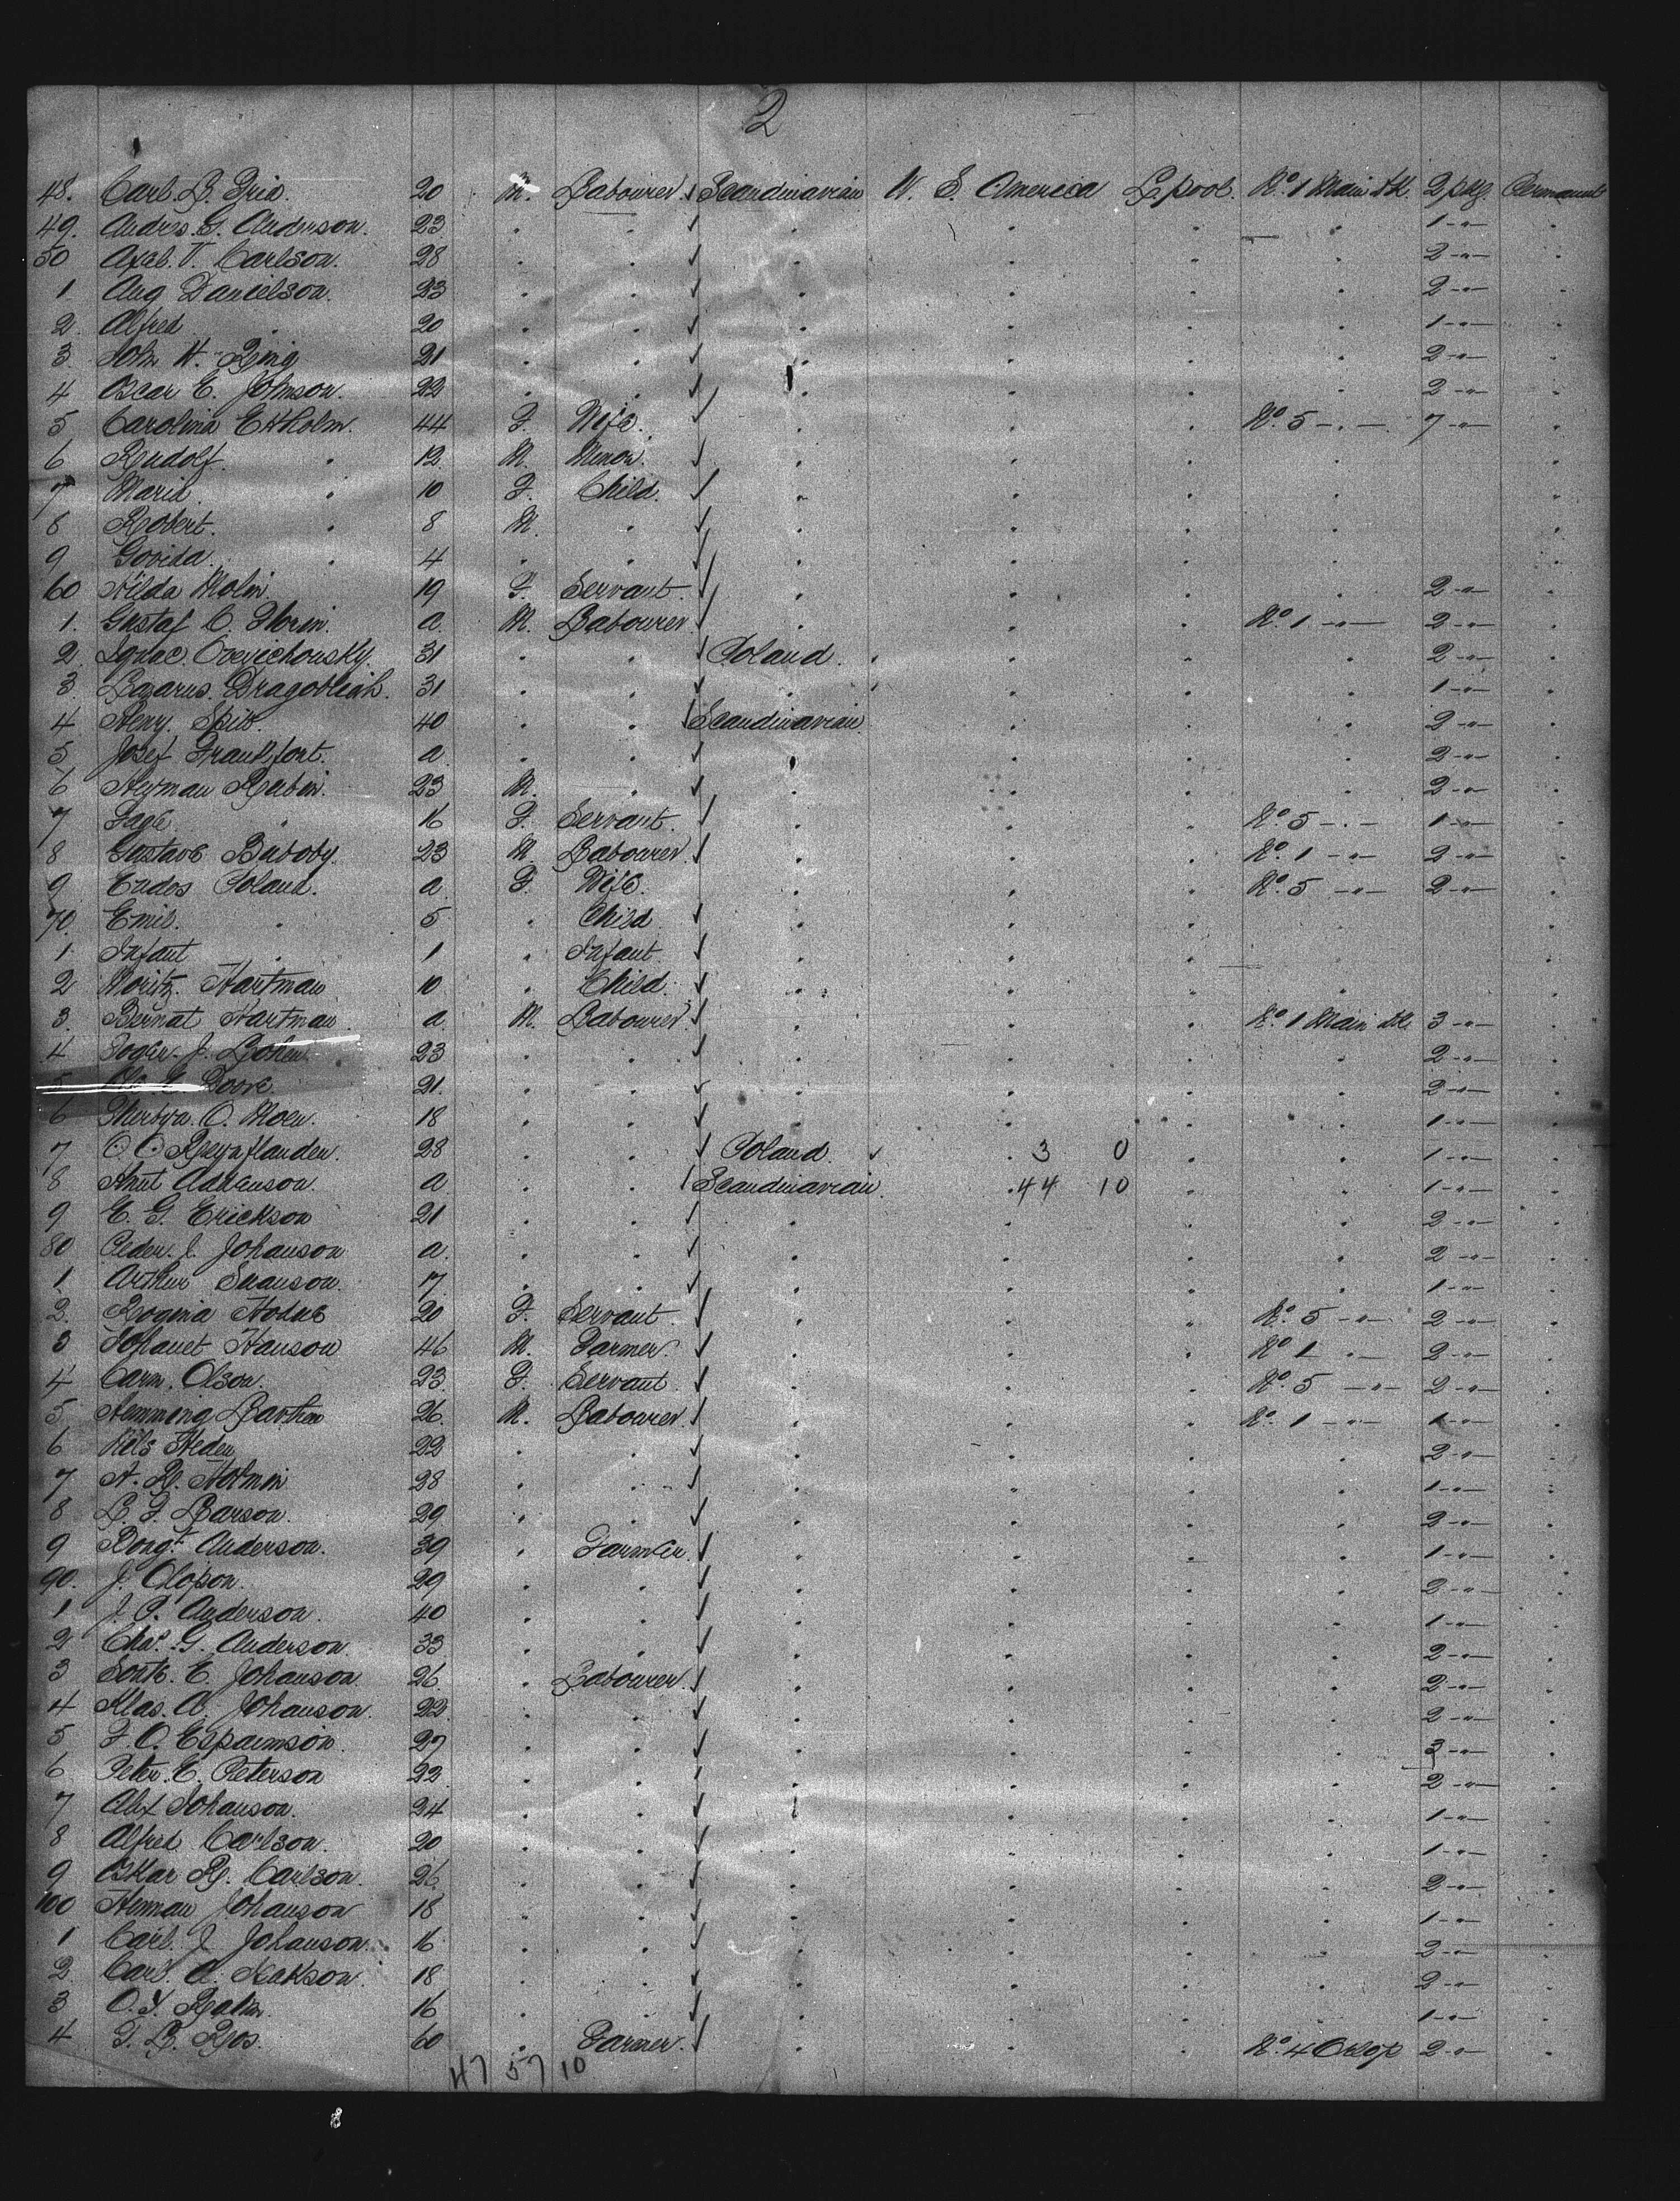 2
48. Carl B. Fria. 20 M. Labourer. Scandinavian U. S. America L.pool. No. 1 Main dk. 2 pkg. Permanent
49. Andrs. G. Anderson. 23 . . . . . . 1 -"- .
50 Axel. V. Carlson. 28 . . . . . . 2 -"- .
1. Aug Danielson. 23 . . . . . . 2 -"- .
2. Alfred . 20 . . . . . . 1 -"- .
3. John H. Ring 21 . . . . . . 2 -"- .
4 Oscar E. Johnson. 22 . . . . . . 2 -"- .
5 Carolina Ekholm. 44 F. Wife. . . . No. 5 -.- 7 -"- .
6 Rudolf . 12 M. Minor. . . . . .
7 Maria . 10 F. Child. . . . . .
8 Robert. . 8 M. . . . . . .
9 . 4 . . . . . . .
60 Hilda Molin. 19 F. Servant. . . . . 2 -"- .
1. Gustaf C. a. M. Labourer. . . . No. 1 -"- 2 -"- .
2. Ignac. 31 . . Poland. . . . 2 -"- .
3. Lazarus. 31 . . . . . . 1 -"- .
4 40 . . Scandinavian. . . . 2 -"- .
5 Josef Frankfort. a . . . . . . 2 -"- .
6 Heyman Rubin. 23 M. . . . . . 2 -"- .
7 . 16 F. Servant. . . . No. 5 -.- 1 -"- .
8 Gustave 23 M. Labourer. . . . No. 1 -"- 2 -"- .
9 Poland. a F. Wife. . . . No. 5 -"- 2 -"- .
70. Emil. . 5 . Child . . . . .
1. Infant . 1 . Infant. . . . . .
2 Moritz. Hartman 10 . Child. . . . . .
3. Bernat Hartman a. M. Labourer. . . . No. 1 Main dk. 3 -"- .
4 J. 23 . . . . . . 2 -"- .
5 21. . . . . . . 2 -"- .
6 O. Moen. 18 . . . . . . 1 -"- .
7 O. O. 28 . . Poland. . 3 0 . . 1 -"- .
8 a . . Scandinavian. .44 10 . . 1 -"- .
9 E. G. Erickson 21 . . . . . . 2 -"- .
80 Peder. J. Johanson a. . . . . . . 2 -"- .
1 Arthur Swanson. 17 . . . . . . 1 -"- .
2. 20 F. Servant. . . . No. 5 -"- 2 -"- .
3 Hanson 46 M. Farmer. . . . No. 1 .- 2 -"- .
4 Carin. Olson. 23. F. Servant. . . . No. 5 -"- 2 -"- .
5. Hemming 26. M. Labourer. . . . No. 1 -"- 1 -"- .
6 Nels Heden 22 . . . . . . 2 -"- .
7 A. R. Holmin 28 . . . . . . 1 -"- .
8 L. F. Larson. 29 . . . . . . 2 -"- .
9 Bengt Anderson. 39 . Farmer. . . . . 1 -"- .
90. J. Olofson. 29 . . . . . . 2 -"- .
1 J. P. Anderson. 40 . . . . . . 1 -"- .
2 Chas. G. Anderson. 33 . . . . . . 2 -"- .
3 E. Johanson 26. . Labourer. . . . . 2 -"- .
4 Klas. A. Johanson. 22. . . . . . . 2 -"- .
5 F. O. 27 . . . . . . 3 -"- .
6 Peter. E. Peterson 22 . . . . . . 2 -"- .
7 Alex Johanson. 24 . . . . . . 1 -"- .
8 Alfred Carlson. 20 . . . . . . 1 -"- .
9 Oskar R. Carlson. 26. . . . . . . 2 -"- .
100 Herman Johanson 18 . . . . . . 1 -"- .
1 Carl. J. Johanson. 16 . . . . . . 2 -"- .
2. Carl. A. 18 . . . . . . 2 -"- .
3 O. Y. 16 . . . . . . 1 -"- .
4 60 . Farmer. . . . No. 4 2 -"- .
47 57 10